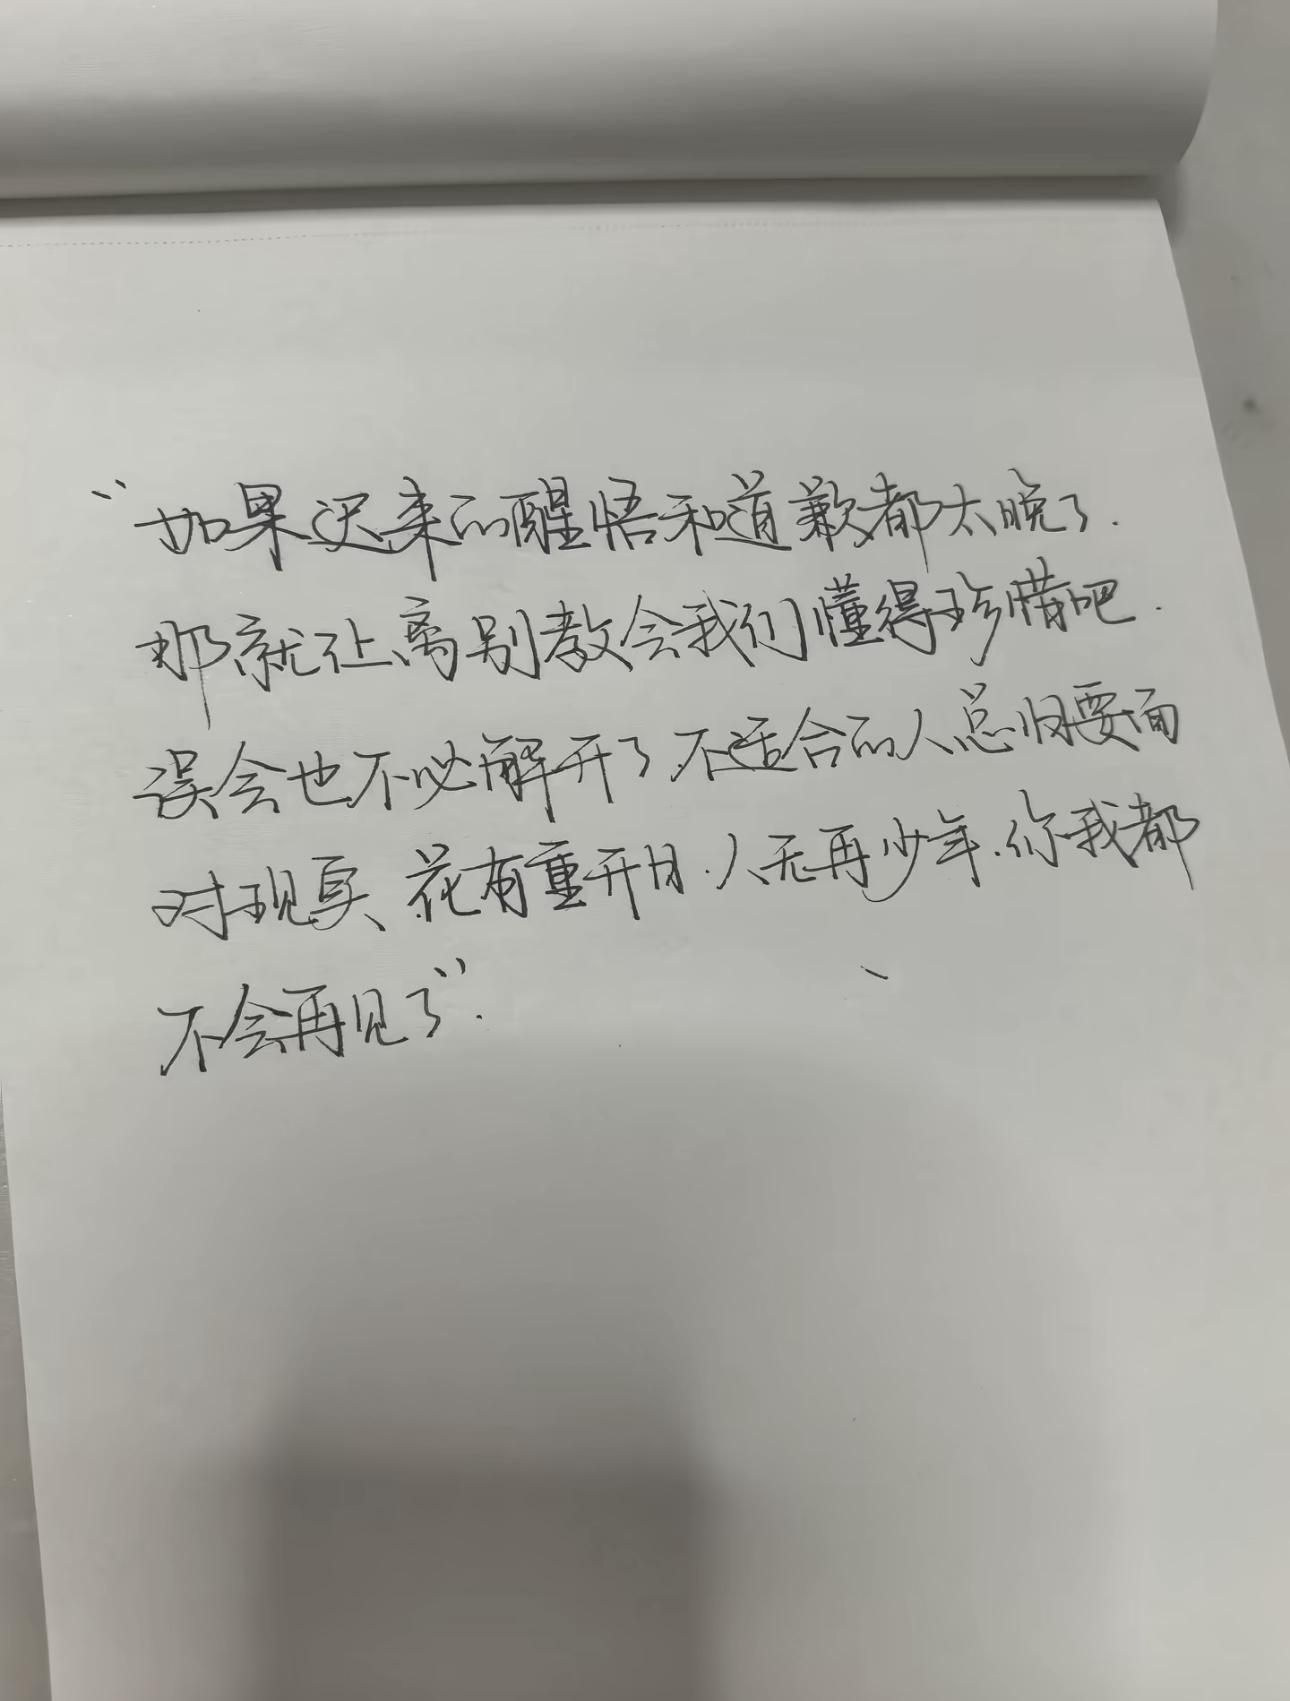 “如果迟来的醒悟和道歉都太晚了.
那就让离别教会我们懂得珍惜吧.
误会也不必解开了.不适合的人总归要面
对现实、花有重开日.人无再少年.你我都
不会再见了”.